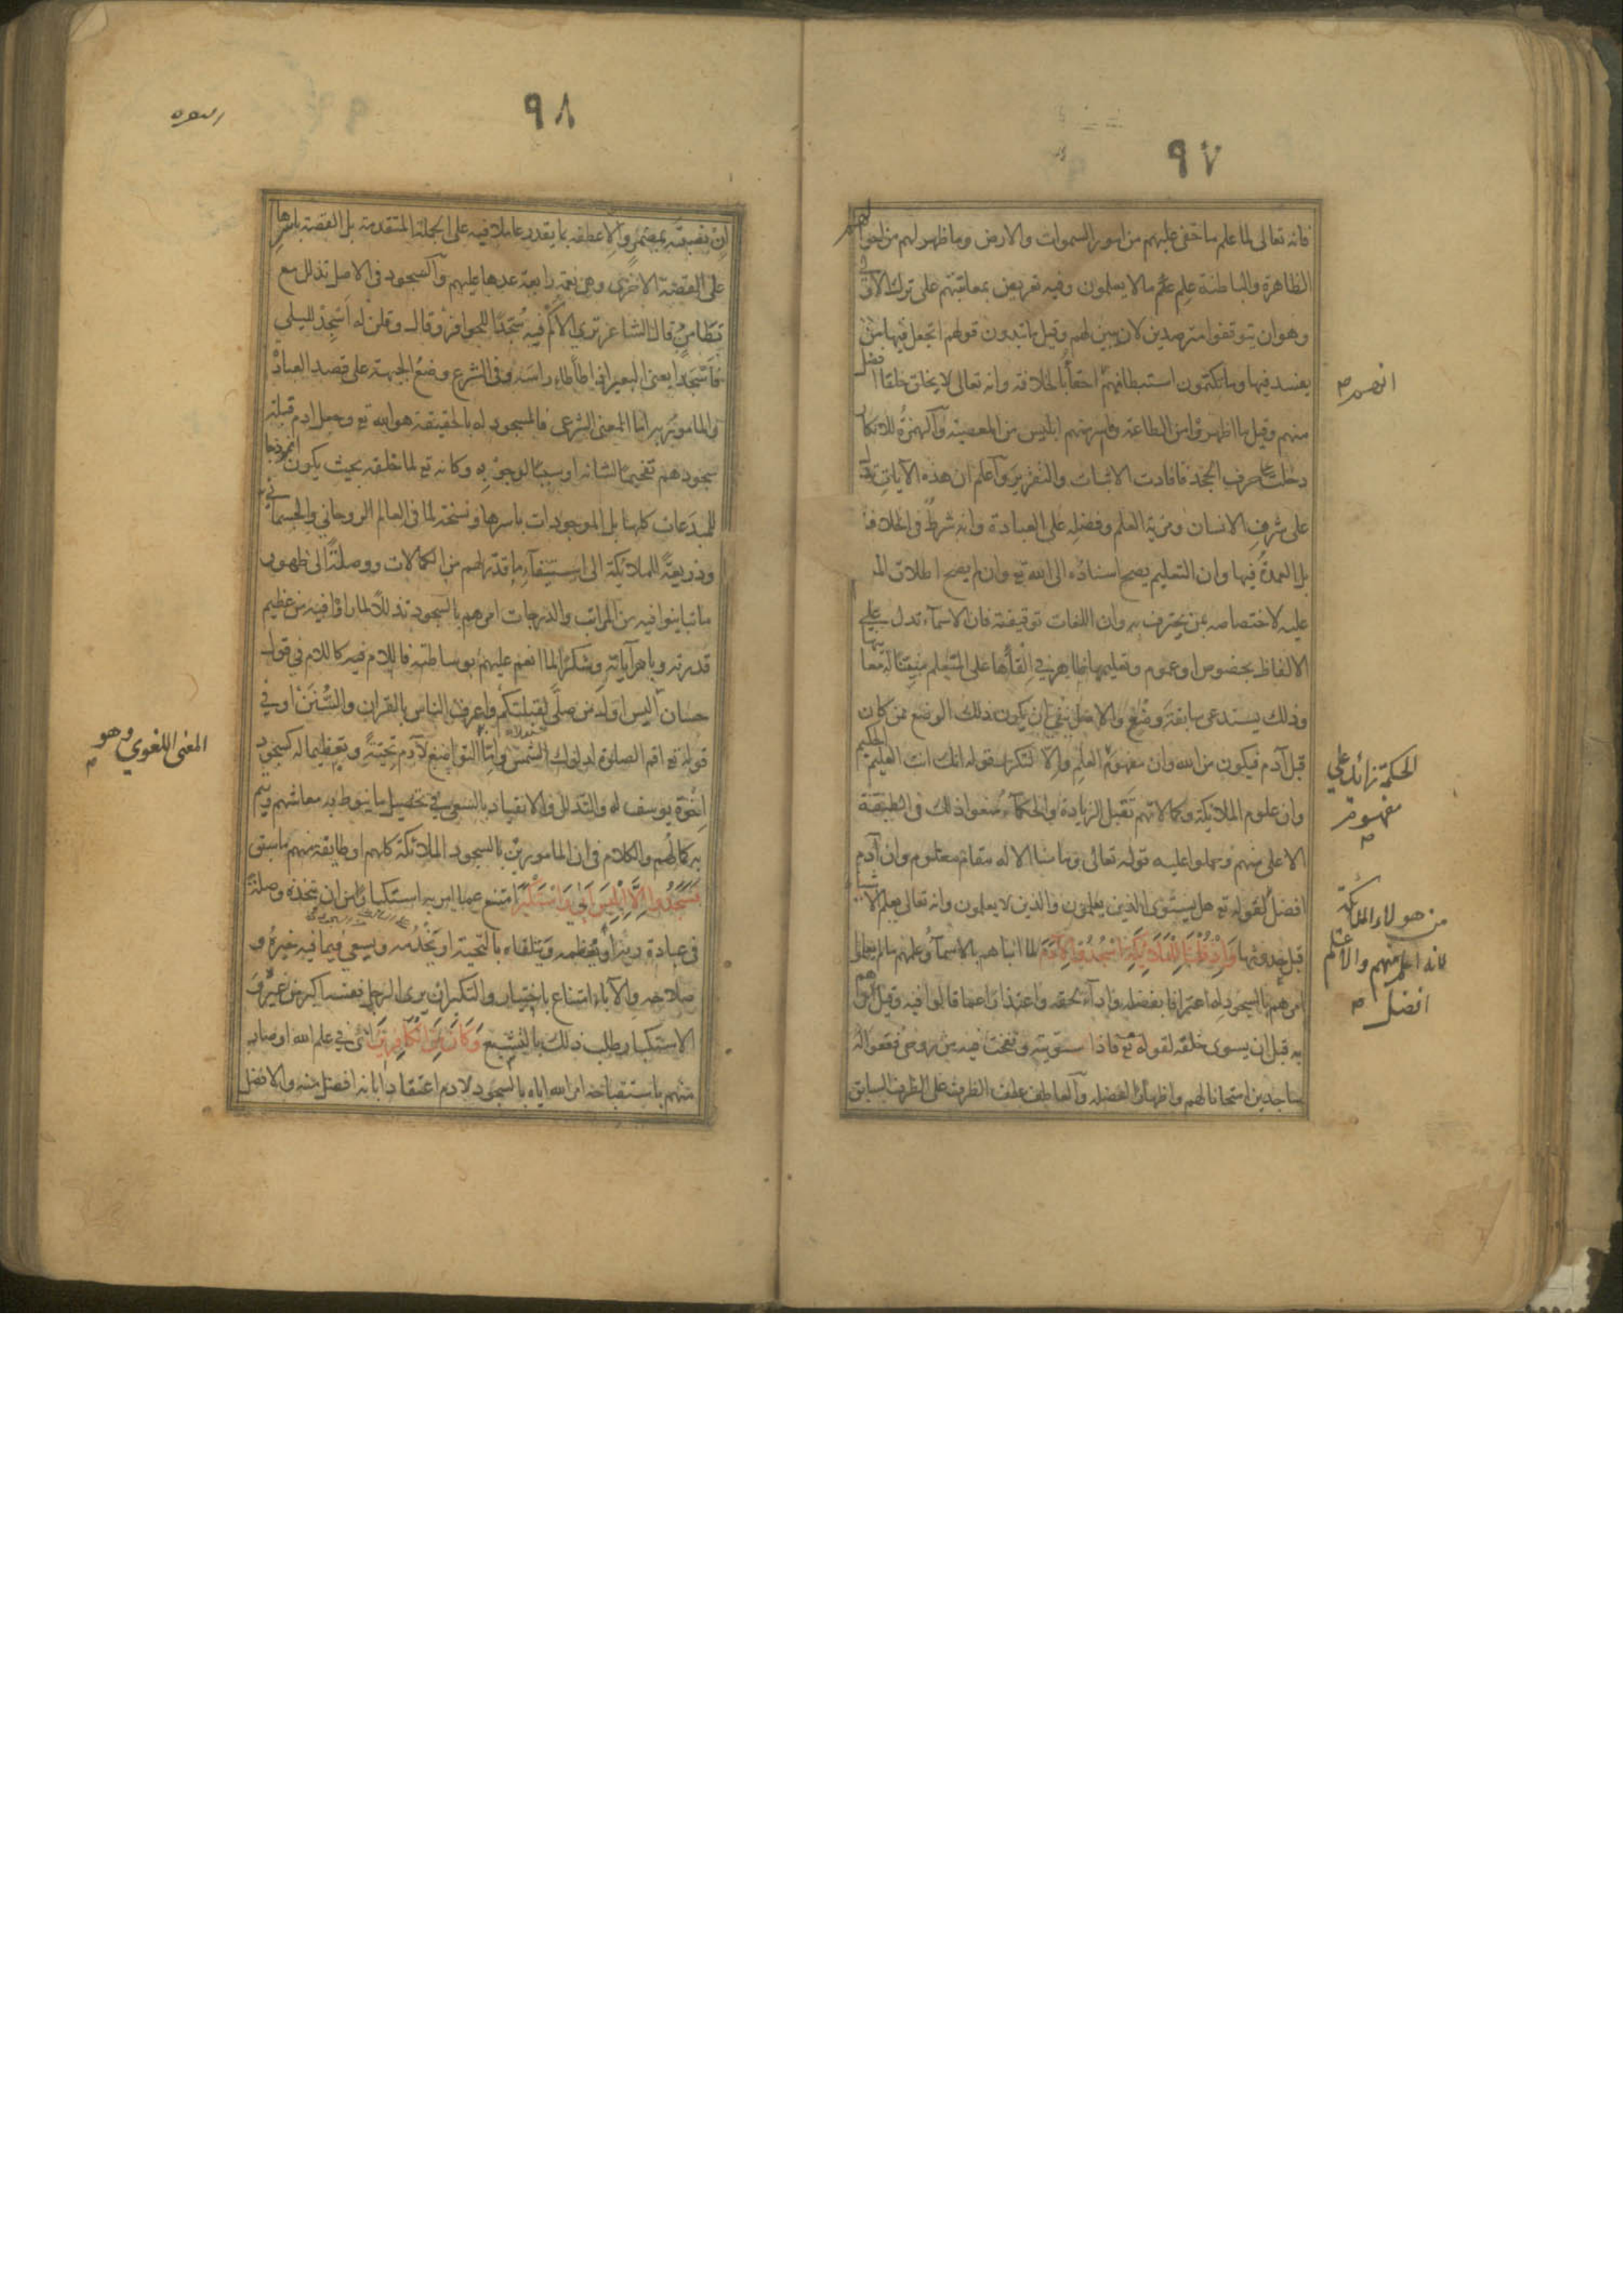 ٩٧
فانه تعالى لما علم ما خفى عليهم من امور السموات والارض وما ظهر لهم من احوالهم
الظاهرة والباطنة علم ما لا يعلمون وفيه تعريض بمعاتبتهم على ترك الاولى
وهو ان يتوقفوا مترصدين لان يبين لهم وقيل ما تبدون قولهم اتجعل فيها من
يفسد فيها وما تكتمون استبطانهم انهم احقاء بالخلافة وانه تعالى لا يخلق خلقا افضل
منهم وقيل ما اظهروا من الطاعة واسر منهم ابليس من المعصية والهمزة للانكار
دخلت على حرف الجحد فافادت الاثبات والتقرير واعلم ان هذه الآيات تدل
على شرف الانسان ومزية العلم وفضله على العبادة وانه شرط فى الخلافة
بل العمدة فيها وان التعليم يصح اسناده الى الله تع وان لم يصح اطلاق المـ
عليه لاختصاصه بمن يحترف به وان اللغات توقيفية فان الاسماء تدل على
الالفاظ بخصوص او عموم وتعليمها ظاهر في القائها على المتعلم مبينا له معانيها
وذلك يستدعى سابقة وضع والاصل ينفى ان يكون ذلك الوضع ممن كان
قبل آدم فيكون من الله وان مفهوم العلم والا لتكرر قوله انك انت العليم الحكيم
وان علوم الملائكة وكمالاتهم تقبل الزيادة والحكماء منعوا ذلك فى الطبقة
الاعلى منهم وحملوا عليه قوله تعالى وما منا الا له مقام معلوم وان آدم
افضل لقوله تع هل يستوى الذين يعلمون والذين لا يعلمون وانه تعالى يعلم الاشياء
قبل حدوثها وَاِذْ قُلْنَا لِلْمَلَائِكَةِ اسْجُدُوا لِآدَمَ لما انباهم بالاسماء وعلمهم ما لم يعلموا
امرهم بالسجود له اعترافا بفضله واداء لحقه واعتذارا عما قالوا فيه وقيل امرهم
به قبل ان يسوى خلقه لقوله تع فاذا سويته ونفخت فيه من روحى فقعوا له
ساجدين امتحانا لهم واظهارا لفضله والعاطف عطف الظرف على الظرف السابق
الحكمة زائد على
مفهوم
من هولاء الملائكة
لانه اعلم منهم والاعلم
افضل
٩٨
ان نصبته بمضمر والا عطفه بما يقدر عاملا فيه على الجملة المتقدمة بل القصة باسرها
على القصة الاخرى وهى نعمة رابعة عدها عليهم والسجود فى الاصل تذلل مع
تطامن قال الشاعر ترى الاكم فيه سجدا للحوافر وقال وقلن له اسجد لليلى
فاسجدا يعنى البعير اذا طأطأ راسه وفى الشرع وضع الجبهة على قصد العبادة
والمامور به اما المعنى الشرعى فالمسجود له بالحقيقة هو الله تع وجعل ادم قبلة
سجودهم تفخيما لشانه او سببا لوجوبه وكانه تع لما خلقه بحيث يكون انموذجا
للمبدعات كلها بل الموجودات باسرها ونسخة لما فى العالم الروحاني والجسماني
وذريعة للملائكة الى استيفاء ما قدر لهم من الكمالات ووصلة الى ظهور
ما تباينوا فيه من المراتب والدرجات امرهم بالسجود تذللا لما راوا فيه من عظيم
قدرته وباهر آياته وشكرا لما انعم عليهم بوساطته فاللام فيه كاللام في قول
حسان اليس اول من صلى لقبلتكم واعرف الناس بالقران والسنن او في
قوله تع اقم الصلوة لدلوك الشمس واما التواضع لآدم تحية وتعظيما له كسجود
اخوة يوسف له والتذلل والانقياد بالسعي في تحصيل ما ينوط به معاشهم ويتم
به كمالهم والكلام فى ان المامورين بالسجود الملائكة كلهم او طايفة منهم ما سبق
فَسَجَدُوا اِلَّا اِبْلِيسَ اَبَى وَاسْتَكْبَرَ امتنع عما امر به استكبارا من ان يتخذه وصلة
فى عبادة ربه او يعظمه ويتلقاه بالتحية او يخدمه ويسعى فيما فيه خيره و
صلاحه والاباء امتناع باختيار والتكبر ان يرى الرجل نفسه اكبر من غيره و
الاستكبار طلب ذلك بالتشبع وَكَانَ مِنَ الْكَافِرِينَ اى في علم الله او صار
منهم باستقباحه امر الله اياه بالسجود لادم اعتقادا بانه افضل منه والافضل
المعنى اللغوي وهو